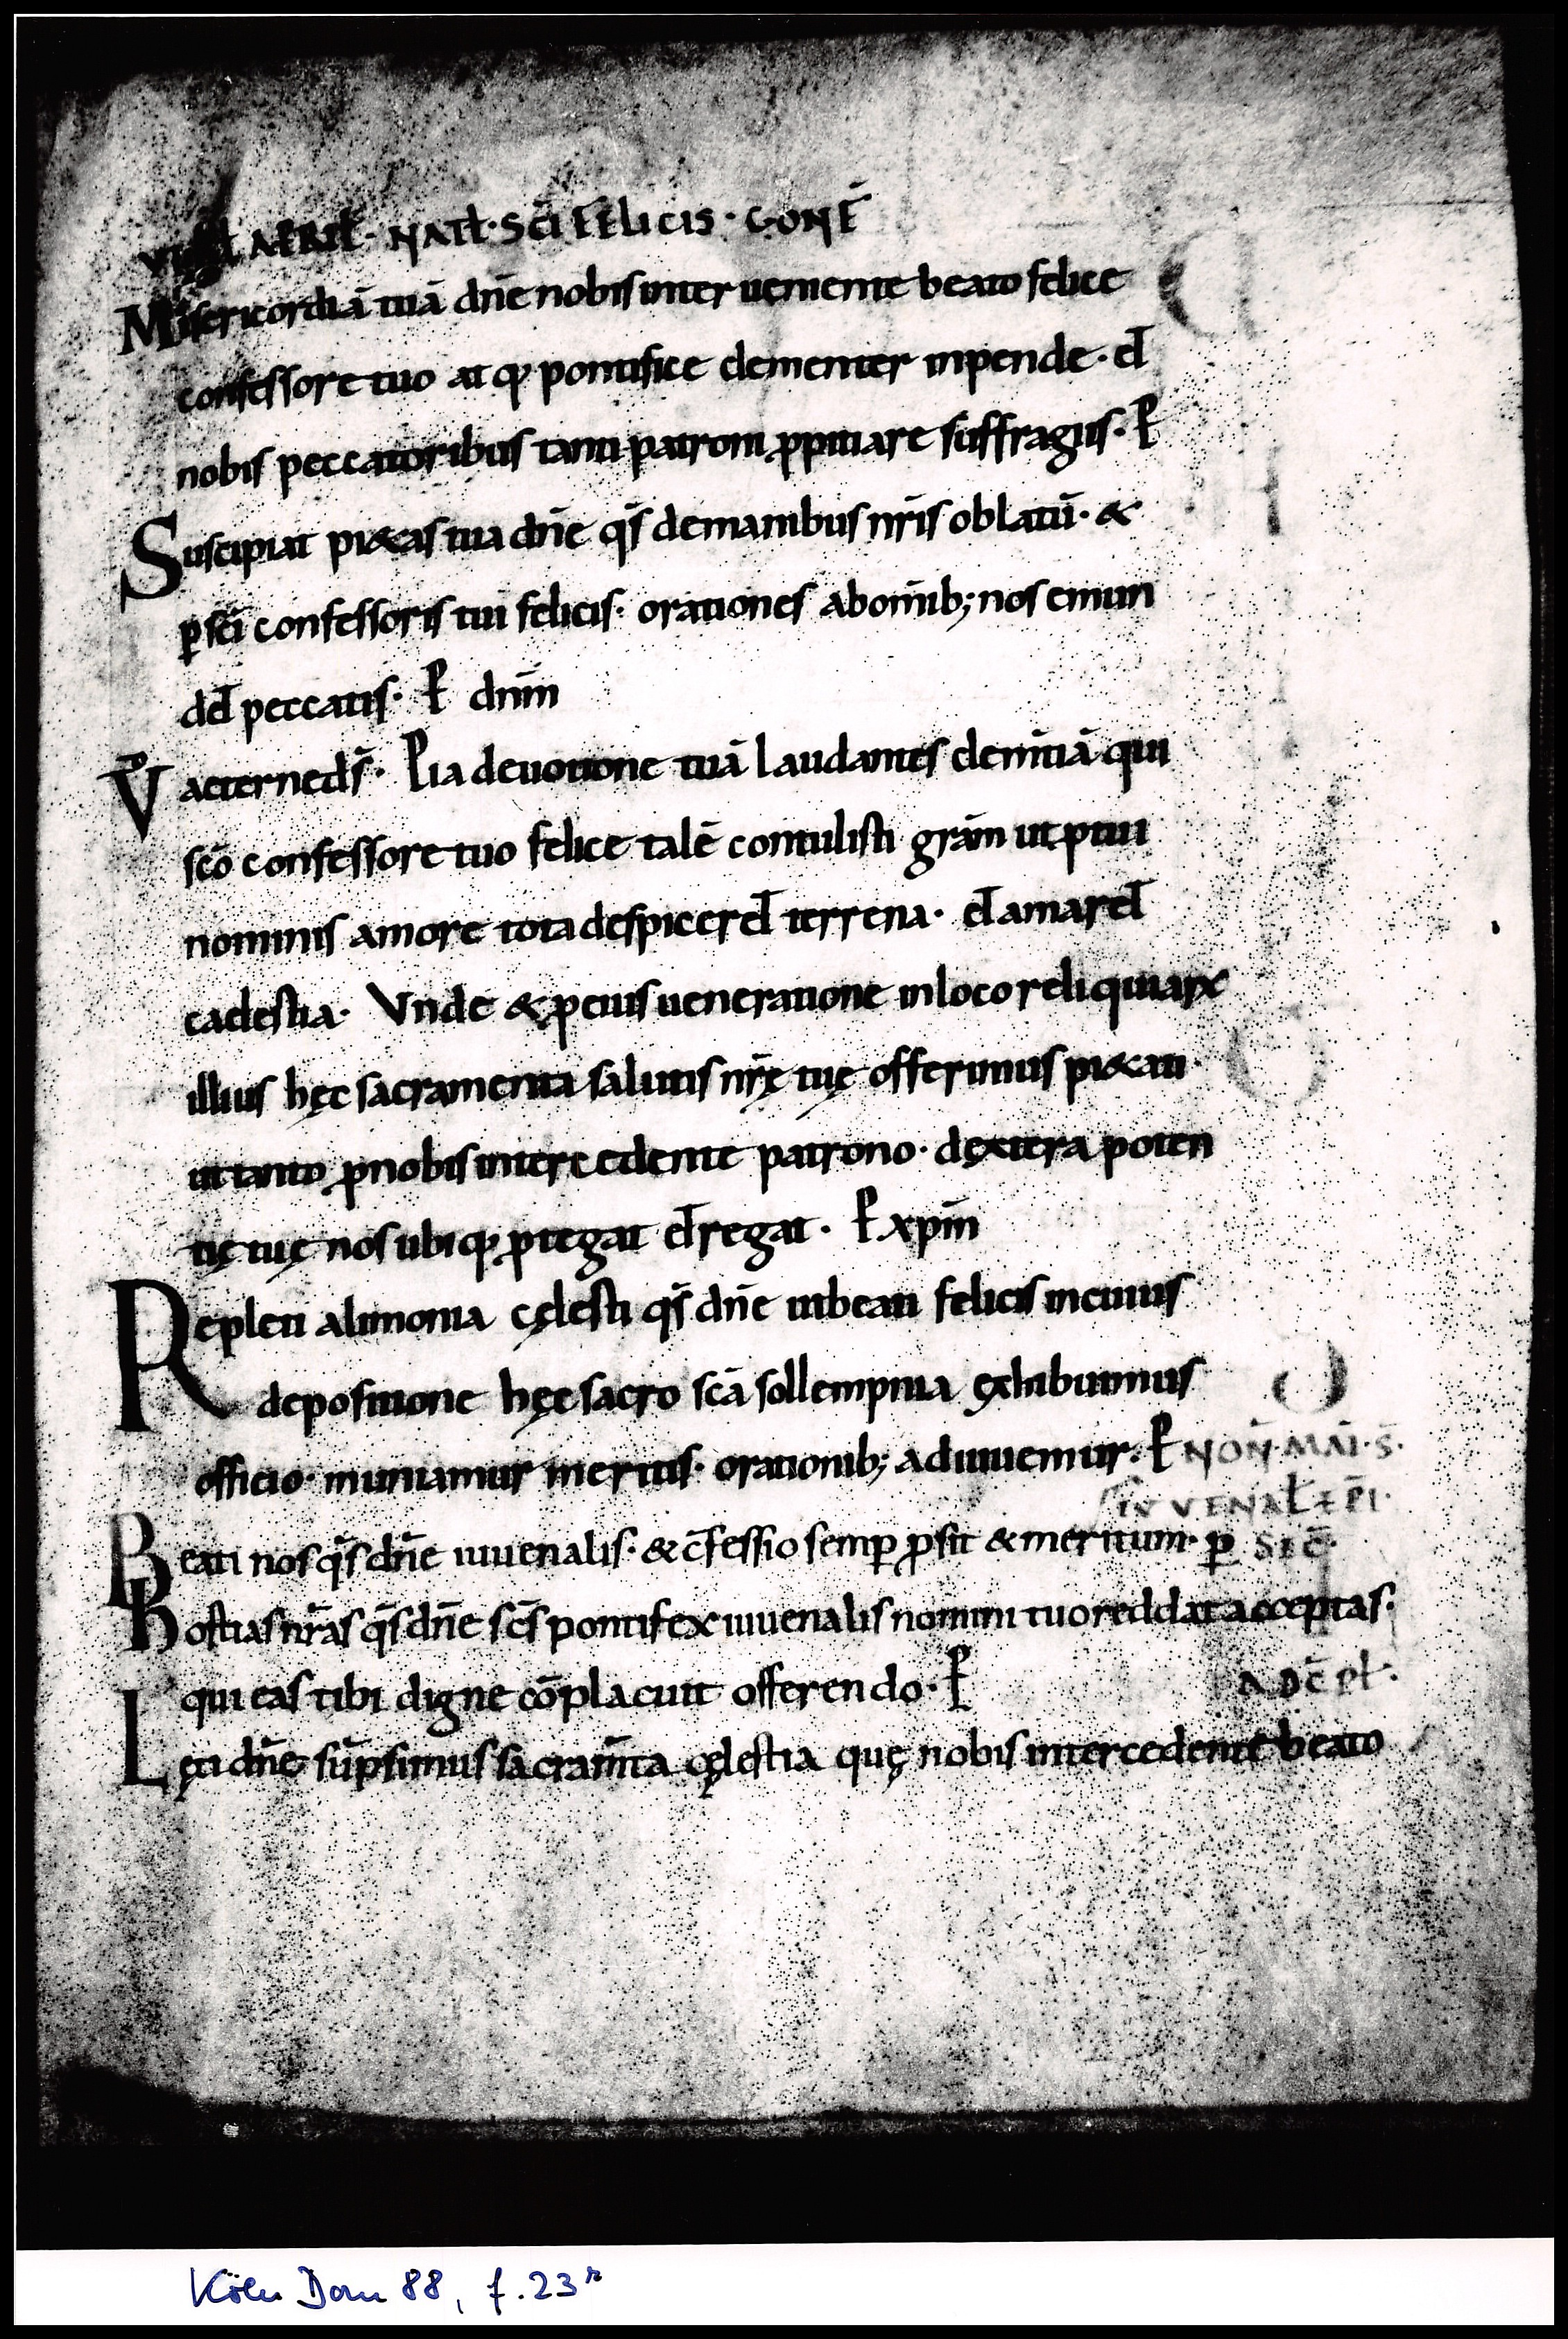 APRIL· NATL· SCI FELICIS · CONF̄
Misericordiā tuā dn̄e nobis inter ueniente beato felice
confessore tuo atq; pontifice clementer inpende· et
nobis peccatoribus tanti patroni ꝓpitiare suffragiis· P̄
Suscipiat pi&as tua dn̄e qs̄ demanibus nr̄is oblatū· &
ꝑ sc̄i confessoris tui felicis· orationes abom̄ib; nos emun
det peccatis· P̄ dnm̄
V̄ aeterned̄s· Pia deuotione tuā laudantes clem̄tiā qui
sc̄o confessore tuo felice talē contulisti grām ut ꝓ tui
nominis amore tota despiceret terrena· et amaret
caelestia· Vnde & ꝓ eius ueneratione inloco reliquiaꝝ
illius hęc sacramenta salutis nr̄ę tuę offerimus pi&ati·
ut tanto ꝓ nobis intercedente patrono· dęxtera poten
tię tuę nos ubiq; ꝓtegat et regat· P̄ xpm̄
Repleti alimonia cęlesti qs̄ dn̄e ut beati felicis incuius
depositione hęc sacro scā sollempnia ęxhibuimus
officio· muniamur meritis· orationib; adiuuemur· P̄ NON̄· MAI· S̄·
IUVENAL EPI·
Beati nos qs̄ dn̄e iuuenalis· & c̄fessio semꝑ ꝓsit & meritum· ꝑ SEC̄·
Hostias nr̄as qs̄ dn̄e sc̄s pontifex iuuenalis nomini tuo reddat acceptas·
qui eas tibi digne cōplacuit offerendo· P̄ AD CPL·
Lęti dn̄e sūpsimus sacram̄ta cęlestia quę nobis intercedente beato
Köln Dom 88, f. 23ʳ